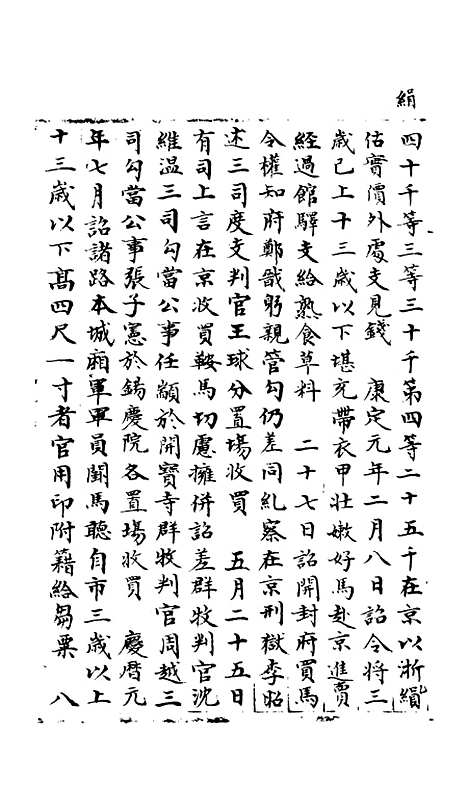 絹
四十千等三等三十千第四等二十五千在京以浙絹
估實價外處支見錢　康定元年二月八日詔令將三
歲已上十三歲以下堪充帶衣甲壯嫩好馬赴京進賣
經過館驛支給熟食草料　二十七日詔開封府買馬
令權知府鄭戩躬親管勾仍差同糺察在京刑獄李昭
述三司度支判官王球分置場收買　五月二十五日
有司上言在京收買鞍馬切慮擁併詔差群牧判官沈
維温三司勾當公事任顓於開寶寺群牧判官周越三
司勾當公事張子憲於錫慶院各置場收買　慶曆元
年七月詔諸路本城廂軍軍員闕馬聽自市三歲以上
十三歲以下高四尺一寸者官用印附籍給芻粟　八